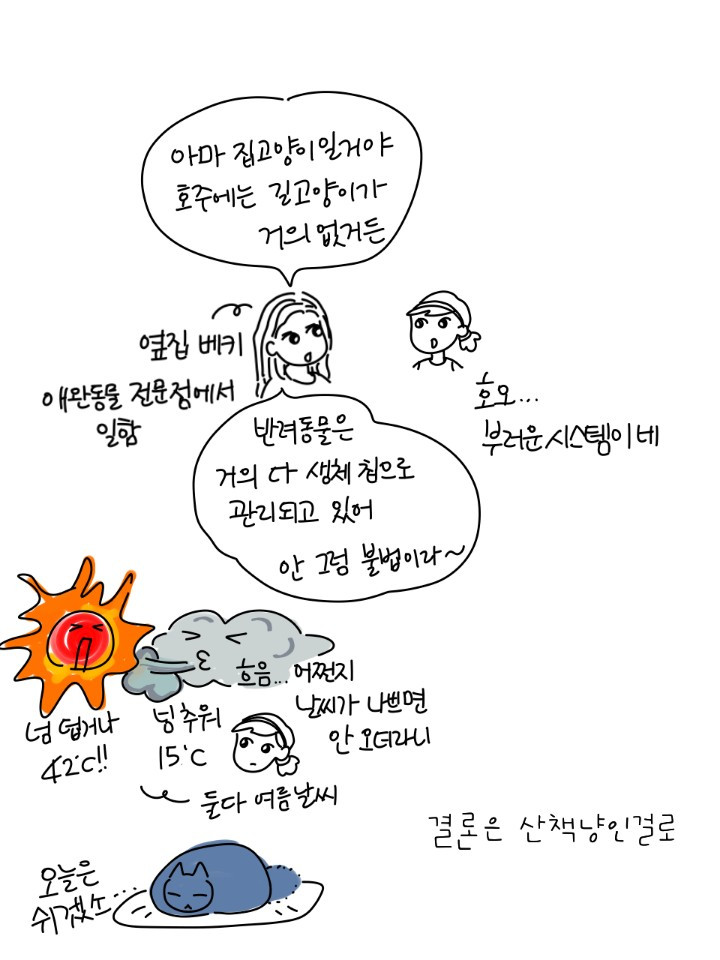 아마 집고양이일거야
호주에는 길고양이가
거의 없거든
옆집 베키
애완동물 전문점에서
일함
호오...
부러운 시스템이네
반려동물은
거의 다 생체 칩으로
관리되고 있어
안 그럼 불법이라~
넘 덥거나
42°C!!
넝 추워
15°C
흐음... 어쩐지
날씨가 나쁘면
안 오더라니
둘다 여름날씨
결론은 산책냥인걸로
오늘은
쉬겠소...